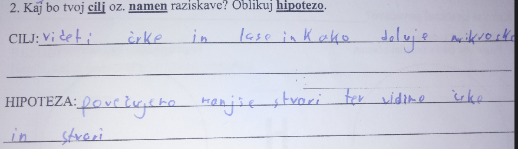 2. Kaj bo tvoj cilj oz. namen raziskave? Oblikuj hipotezo.
CILJ: vičeti črke in lase in kako deluje mikrosko
HIPOTEZA: povečujemo manjše stvari ter vidimo črke
in stvari